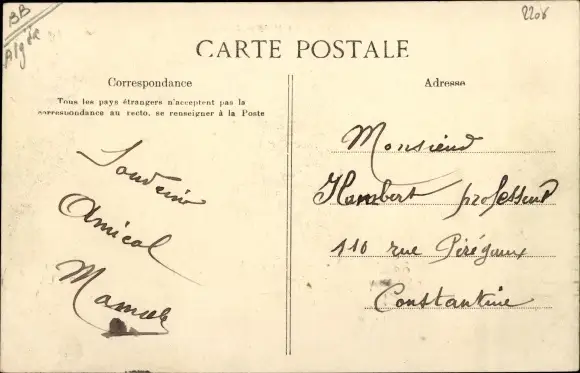 BB
Algérie
2206
CARTE POSTALE
Correspondance
Tous les pays étrangers n'acceptent pas la
correspondance au recto, se renseigner à la Poste
Souvenir
Amical
Adresse
Monsieur
Hambert professeur
110 rue Pérégaux
Constantine